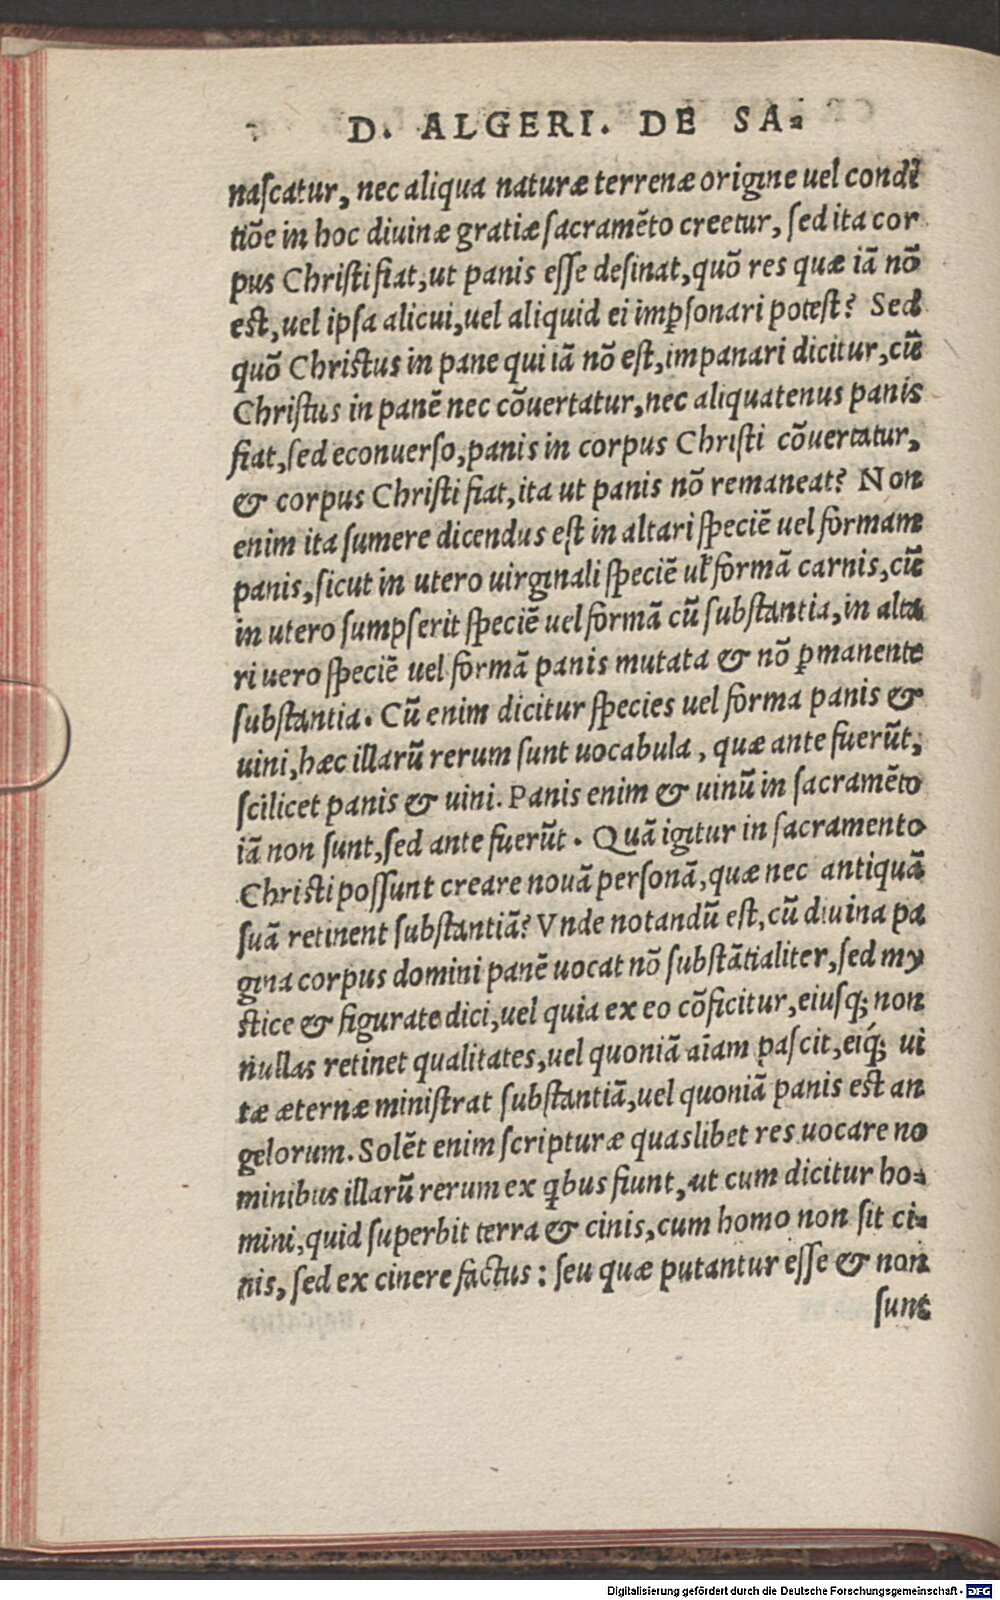 D. ALGERI. DE SA-
naſcatur, nec aliqua naturæ terrenæ origine uel condi
tiõe in hoc diuinæ gratiæ ſacramẽto creetur, ſed ita cor
pus Chriſti fiat, ut panis eſſe deſinat, quõ res quæ iã nõ
eſt, uel ipſa alicui, uel aliquid ei imꝑſonari poteſt? Sed
quõ Chriſtus in pane qui iã nõ eſt, impanari dicitur, cũ
Chriſtus in panẽ nec cõuertatur, nec aliquatenus panis
fiat, ſed econuerſo, panis in corpus Chriſti cõuertatur,
& corpus Chriſti fiat, ita ut panis nõ remaneat? Non
enim ita ſumere dicendus eſt in altari ſpeciẽ uel formam
panis, ſicut in utero uirginali ſpeciẽ ul̓ formã carnis, cũ
in utero ſumpſerit ſpeciẽ uel formã cũ ſubſtantia, in alta
ri uero ſpeciẽ uel formã panis mutata & nõ ꝑmanente
ſubſtantia. Cũ enim dicitur ſpecies uel forma panis &
uini, hæc illarũ rerum ſunt uocabula, quæ ante fuerũt,
ſcilicet panis & uini. Panis enim & uinũ in ſacramẽto
iã non ſunt, ſed ante fuerũt. Quã igitur in ſacramento
Chriſti poſſunt creare nouã perſonã, quæ nec antiquã
ſuã retinent ſubſtantiã? Vnde notandũ eſt, cũ diuina pa
gina corpus domini panẽ uocat nõ ſubſtãtialiter, ſed my
ſtice & figurate dici, uel quia ex eo cõficitur, eiusq́; non
nullas retinet qualitates, uel quoniã aĩam paſcit, eiq́; ui
tæ æternæ miniſtrat ſubſtantiã, uel quoniã panis eſt an
gelorum. Solẽt enim ſcripturæ quaslibet res uocare no
minibus illarũ rerum ex qbus fiunt, ut cum dicitur ho-
mini, quid ſuperbit terra & cinis, cum homo non ſit ci-
nis, ſed ex cinere factus: ſeu quæ putantur eſſe & non
ſunt
Digitalisierung gefördert durch die Deutsche Forschungsgemeinschaft - DFG